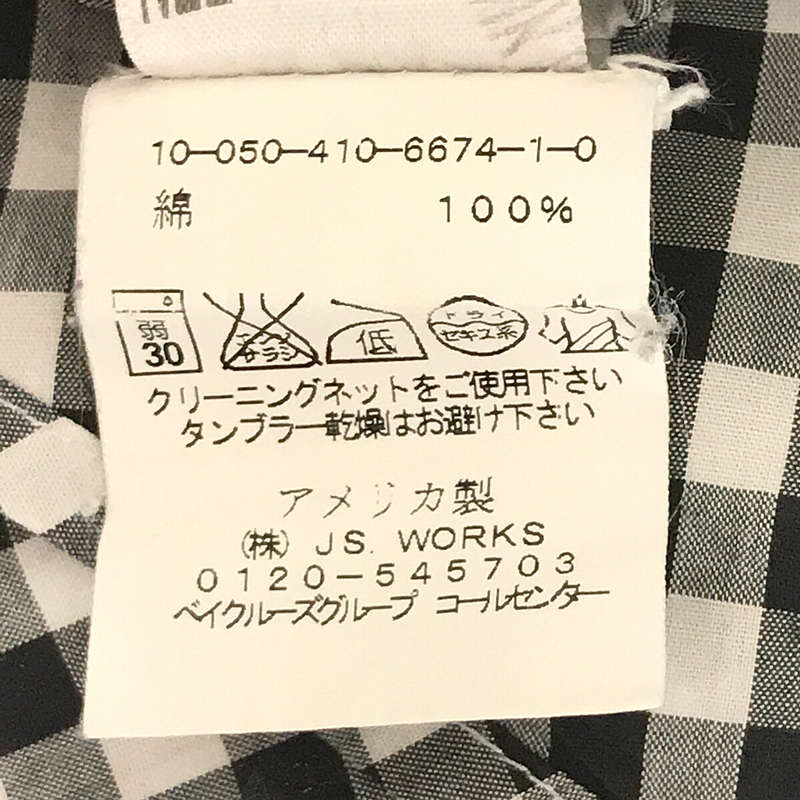 10-050-410-6674-1-0
綿 100%
弱 30 低 ドライ セキユ系
クリーニングネットをご使用下さい
タンブラー乾燥はお避け下さい
アメリカ製
(株) JS. WORKS
0120-545703
ベイクルーズグループ コールセンター